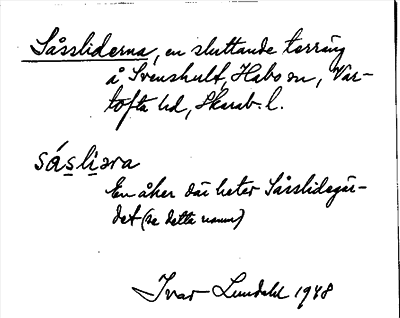 Såssliderna, en sluttande terräng
å Svenshult, Habo sn, Var-
tofta hd, Skarab. l.
såsliəra
En åker där heter Såsslidegär-
det (se detta namn)
Ivar Lundahl 1948